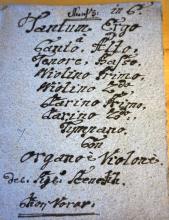 in C.
Tantum Ergo
a
Canto, Alto,
Tenore, Basso,
Violino Primo,
Violino 2do
Clarino Primo,
Clarino 2do,
Tÿmpano,
Con
Organo è Violone.
del Sigr: